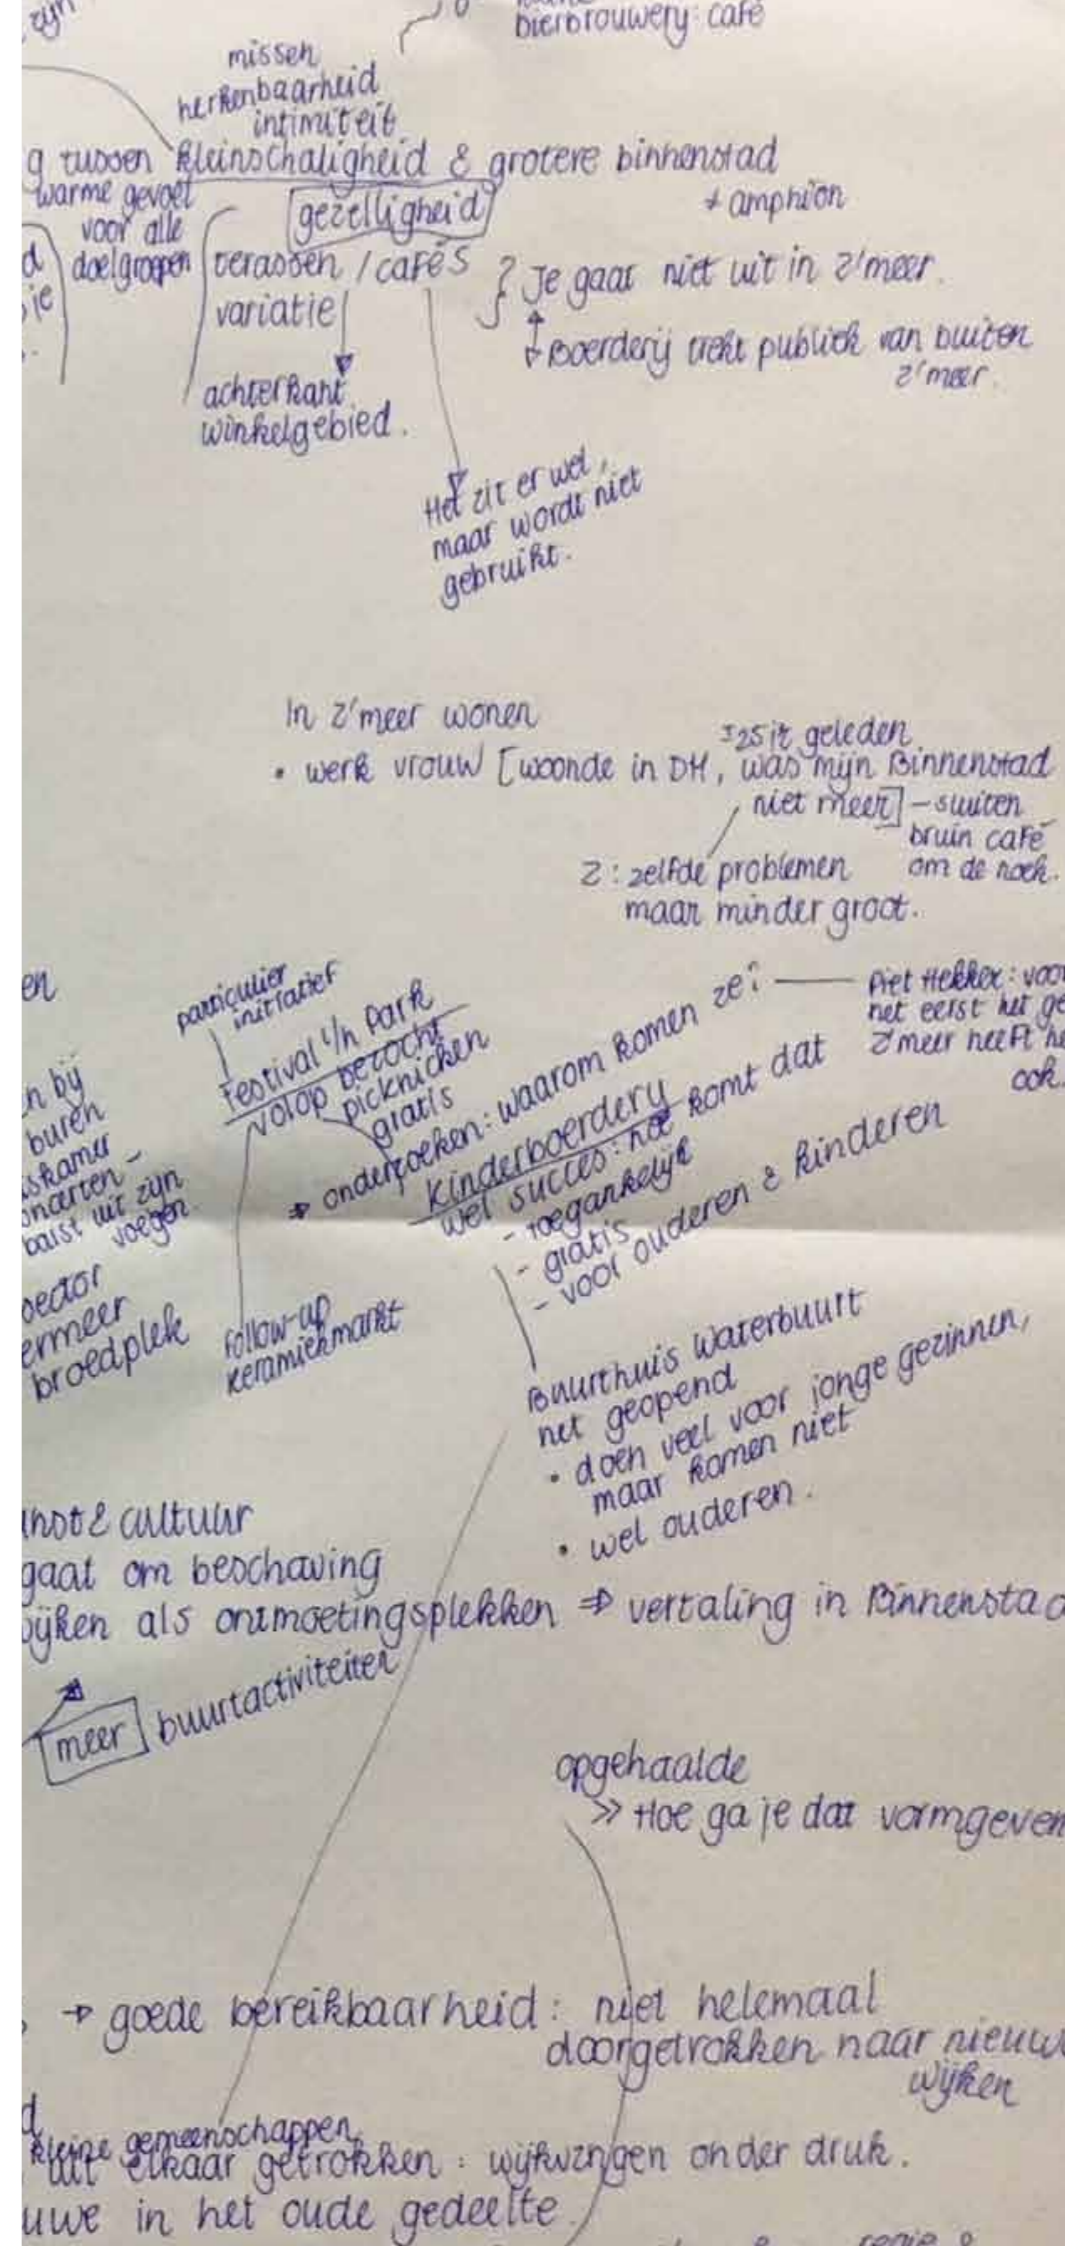 zijn
bierbrouwerij: café
missen
herkenbaarheid
intimiteit
g tussen kleinschaligheid & grotere binnenstad
+ amphion
warme gevoel
voor alle
doelgroepen
gezelligheid
terassen / cafés
variatie
d
ie
Je gaat niet uit in Z'meer.
Boerderij trekt publiek van buiten
Z'meer.
achterkant
winkelgebied.
Het zit er wel,
maar wordt niet
gebruikt.
In Z'meer wonen
±25 jr geleden
• werk vrouw [woonde in DH, was mijn Binnenstad
niet meer] - sluiten
bruin café
om de hoek.
Z: zelfde problemen
maar minder groot.
en
particulier
initiatief
Festival i/h Park
volop bezocht
picknicken
gratis
⇒ onderzoeken: waarom komen ze?
Piet Hekker: voor
net eerst het ge
Z'meer heeft he
ook.
Kinderboerderij
wel succes: hoe komt dat
- toegankelijk
- gratis
- voor ouderen & kinderen
n bij
buren
skamer
oncerten -
baist uit zijn
voegen.
oector
ermeer
broedplek
Follow-up
keramiekmarkt
Buurthuis Waterbuurt
net geopend
• doen veel voor jonge gezinnen,
maar komen niet
• wel ouderen.
unst & cultuur
gaat om beschaving
wijken als ontmoetingsplekken ⇒ vertaling in Binnenstad
meer buurtactiviteiten
opgehaalde
>> Hoe ga je dat vormgeven
→ goede bereikbaarheid: niet helemaal
doorgetrokken naar nieuw
wijken
d
kleine gemeenschappen
uit elkaar getrokken: wijkvzngen onder druk.
uwe in het oude gedeelte
regie &